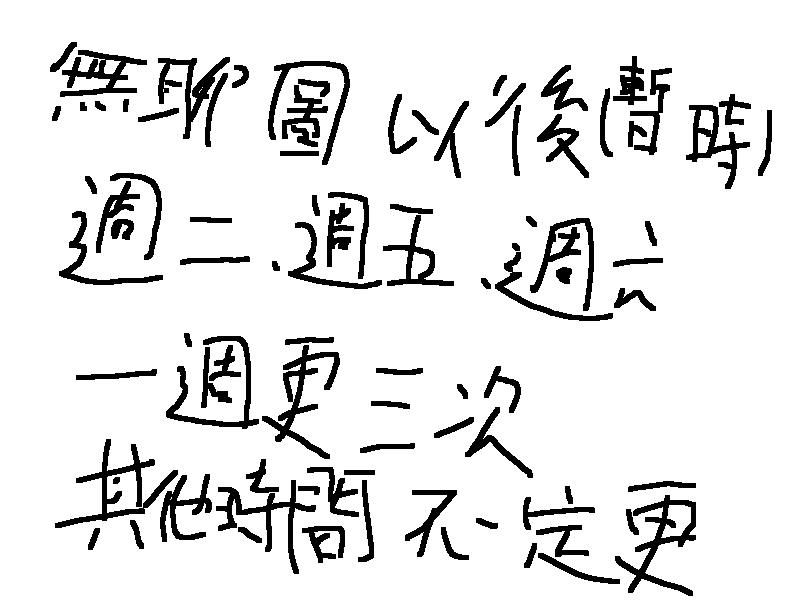 無聊圖 以後(暫時)
週二.週五.週六
一週更三次
其他時間不一定更